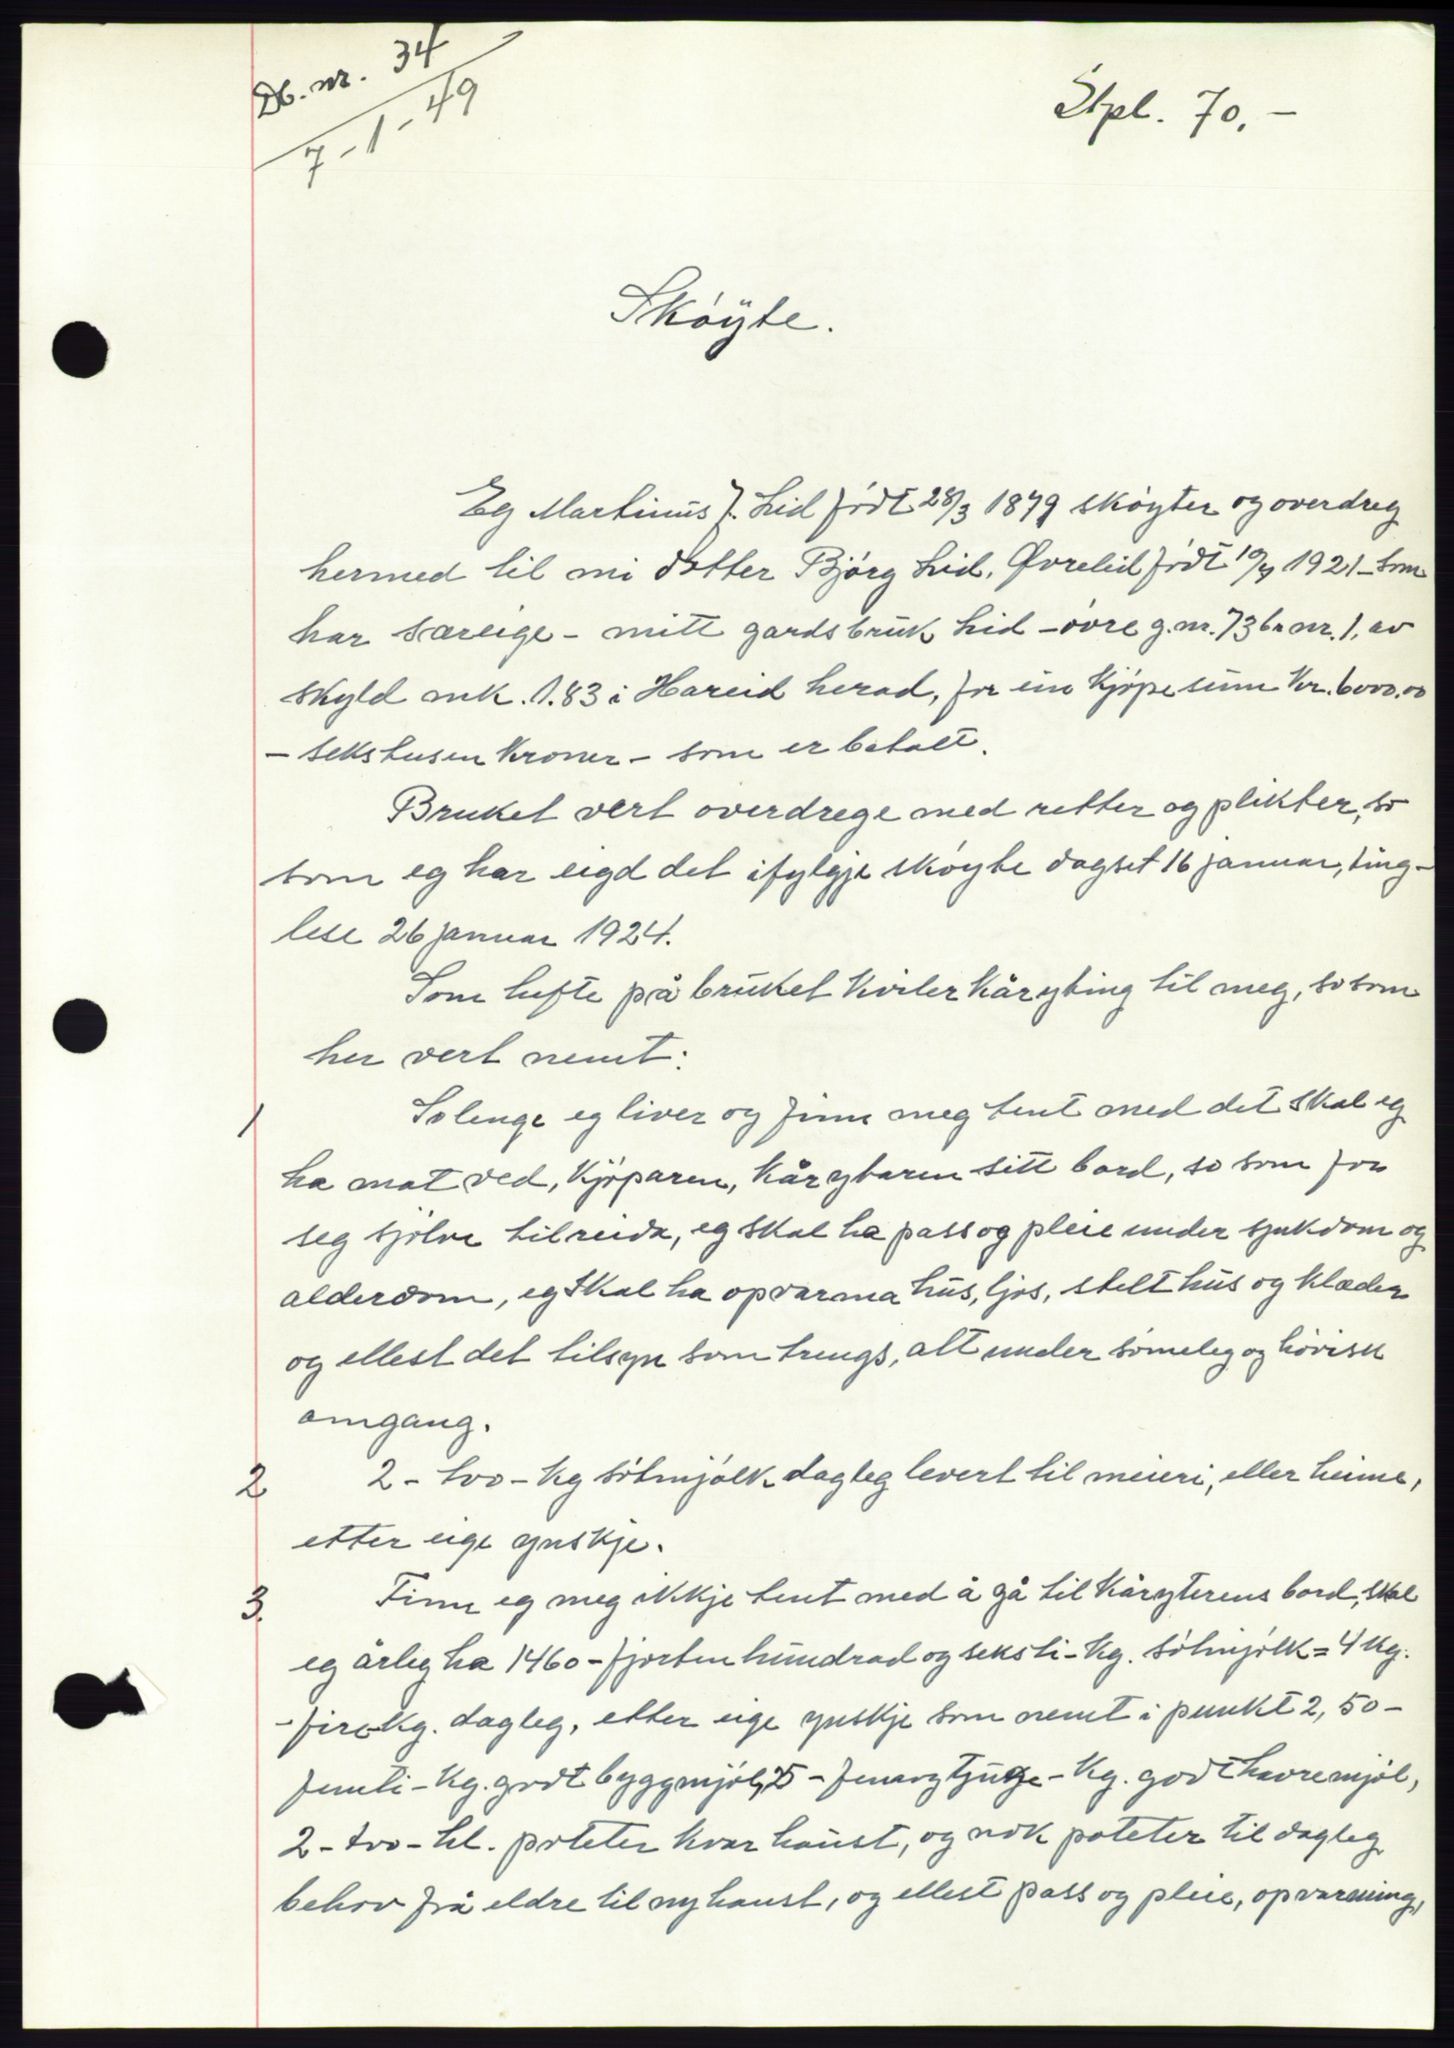 Db. nr. 34
7-1-49
Stpl. 70.-
Skøyte.
Eg Martinus J. Lid født 28/3 1879 skøyter og overdreg
hermed til mi dotter Bjørg Lid, Øvrelid født 10/4 1921 - som
har særeige - mitt gardsbruk Lid - øvre g.nr. 73 br nr. 1, av
skyld mk. 1.83 i Hareid herad, for ein kjøpesum kr. 6000.00
- sekstusen kroner - som er betalt.
Bruket vert overdrege med retter og plikter, so
som eg har eigd det ifylgje skøyte dagset 16 januar, ting-
lese 26 januar 1924.
Som hefte på bruket kviler kårýting til meg, so som
her vert nemt:
1 So lenge eg liver og finn meg tent med det skal eg
ha mat ved, kjøparen, kårytaren sitt bord, so som for
seg sjølve tilreida, eg skal ha pass og pleie under sjukdom og
alderdom, eg skal ha opvarma hus, ljos, stelt hus og klæder
og ellest det tilsyn som trengs, alt under sømeleg og høvisk
omgang.
2 2 - tvo - kg søtmjølk dagleg levert til meieri, eller heime,
etter eige ynskje.
3. Finn eg meg ikkje tent med å gå til kåryterens bord, skal
eg årleg ha 1460 - fjorten hundrad og seksti - kg. søtmjølk = 4 kg.
- fire kg. dagleg, etter eige ynskje som nemt i punkt 2, 50 -
femti - kg. godt byggmjøl, 25 - femogtjuge - kg. godt havremjøl,
2 - tvo - hl. poteter kvar haust, og nok poteter til dagleg
behov frå eldre til ny haust, og ellest pass og pleie, opvarming,